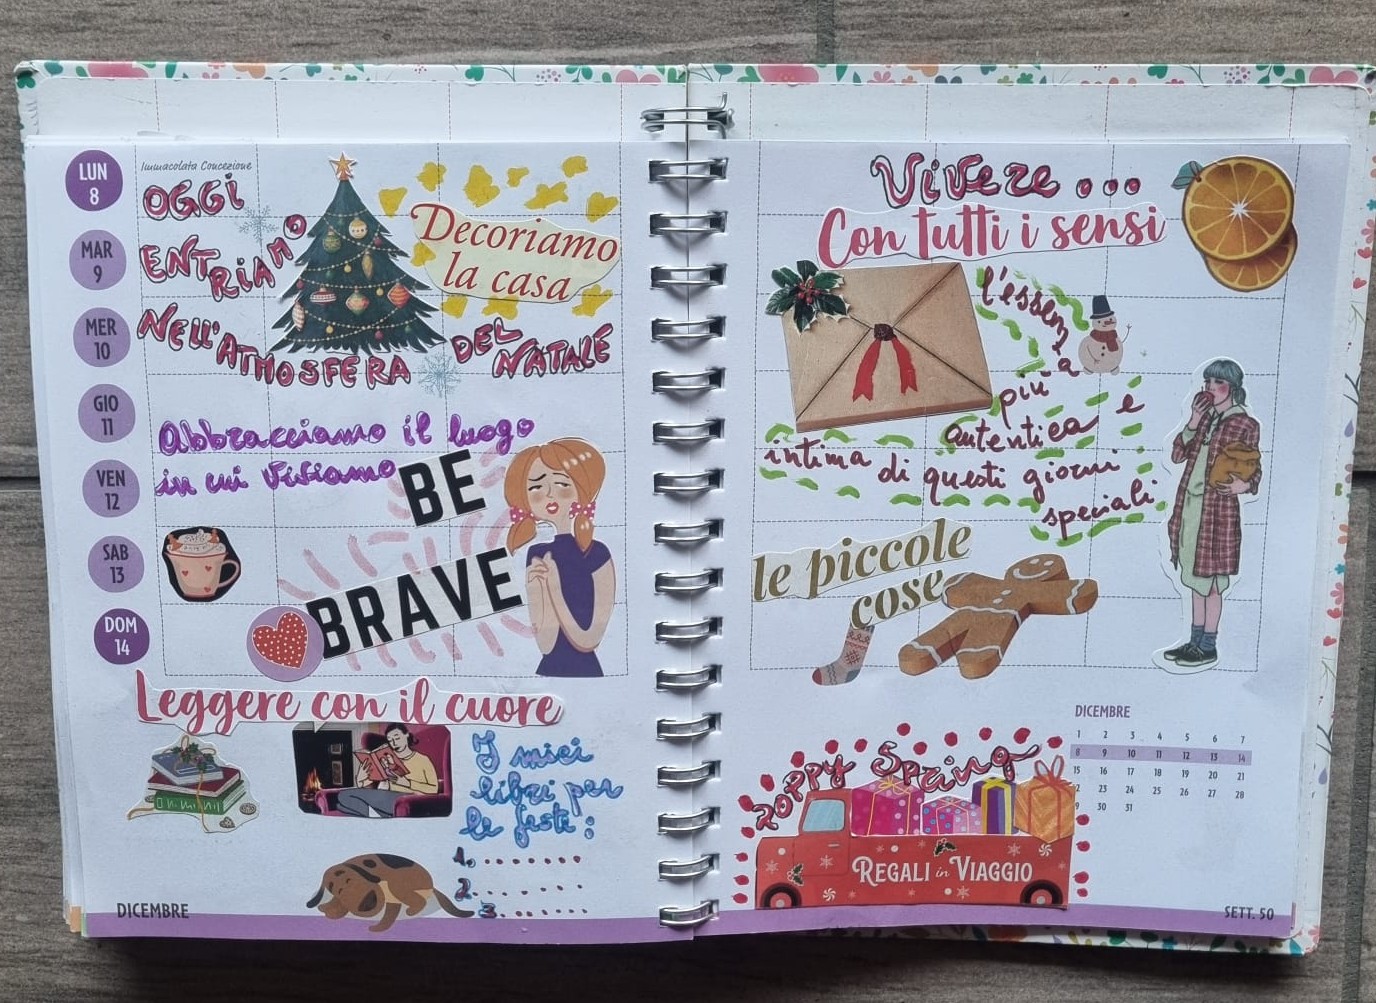 LUN
8
MAR
9
MER
10
GIO
11
VEN
12
SAB
13
DOM
14
Immacolata Concezione
OGGi
ENTRIAMO
NELL'ATMOSFERA DEL NATALE
Decoriamo
la casa
Abbracciamo il luogo
in cui viviamo
BE
BRAVE
Leggere con il cuore
I miei
libri per
le feste:
1. . . . . . .
2. . . . . . .
3. . . . . . .
DICEMBRE
Vivere...
Con tutti i sensi
l'essenza
più
autentica e
intima di questi giorni
speciali
le piccole
cose
ZOPPY SPRING
REGALI in VIAGGIO
DICEMBRE
1 2 3 4 5 6 7
8 9 10 11 12 13 14
15 16 17 18 19 20 21
2 23 24 25 26 27 28
9 30 31
SETT. 50